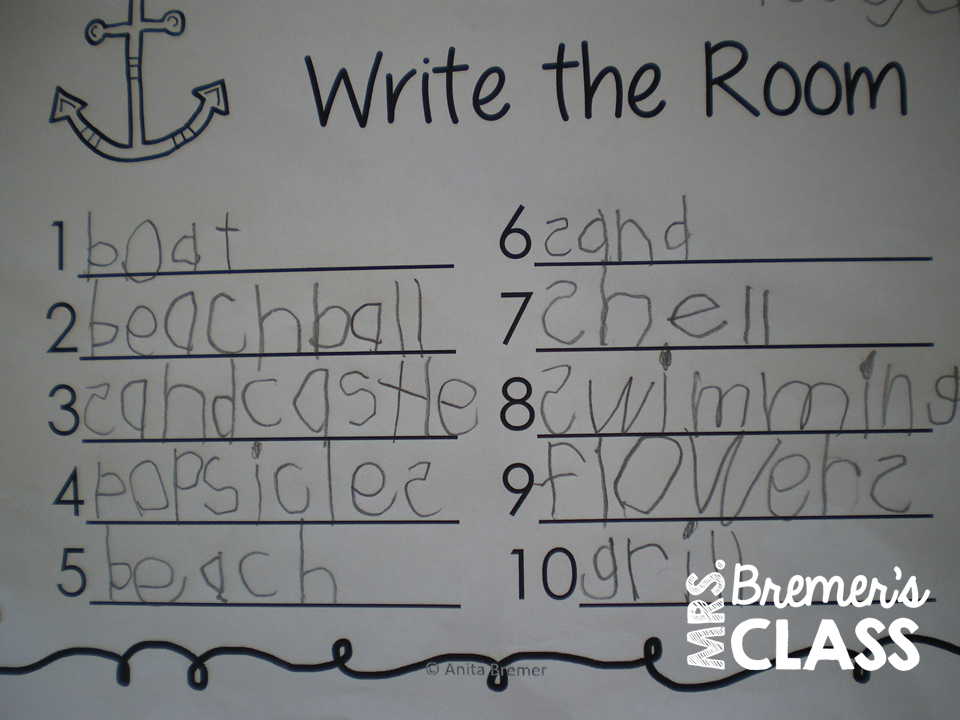 Write the Room
1 boat
2 beachball
3 sandcastle
4 popsicles
5 beach
6 sand
7 shell
8 swimming
9 flowers
10 grill
MRS. Bremer's
CLASS
© Anita Bremer